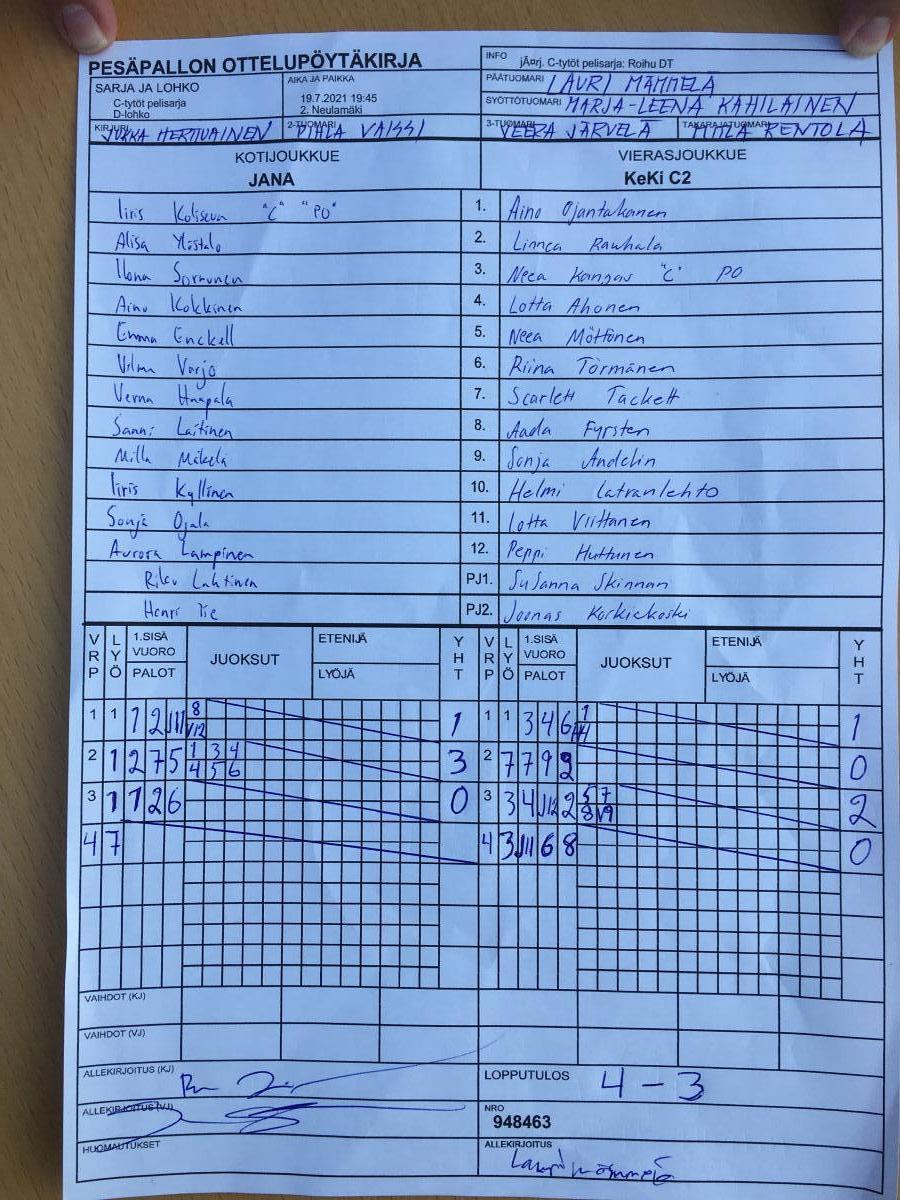 PESÄPALLON OTTELUPÖYTÄKIRJA
INFO jÃ¤rj. C-tytöt pelisarja: Roihu DT
SARJA JA LOHKO
C-tytöt pelisarja
D-lohko
AIKA JA PAIKKA
19.7.2021 19:45
2. Neulamäki
PÄÄTUOMARI LAURI MÄMMELÄ
SYÖTTÖTUOMARI MARJA-LEENA KAHILAINEN
KIRJURI JUKKA
2-TUOMARI
3-TUOMARI VEERA JÄRVELÄ
TAKARAJATUOMARI RENTOLA
KOTIJOUKKUE
JANA
VIERASJOUKKUE
KeKi C2
Iiris "C" "PO" 1. Aino Ojantakanen
Alisa Ylöstalo 2. Linnea Rauhala
Ilona Sormunen 3. Neea Kangas "C" PO
Aino Kokkinen 4. Lotta Ahonen
Emma Enckell 5. Neea Möttönen
Vilma Varjo 6. Riina Törmänen
Verna Haapala 7. Scarlett Tackett
Sanni Laitinen 8. Aada Fyrsten
Milla Mäkelä 9. Sonja Andelin
Iiris Kyllinen 10. Helmi Latvanlehto
Sonja Ojala 11. Lotta Viittanen
Aurora Lampinen 12. Peppi Huttunen
Riku Lahtinen PJ1. Susanna Skinnari
Henri Tie PJ2. Joonas Korkiakoski
VRP LYÖ 1.SISÄ VUORO PALOT JUOKSUT ETENIJÄ LYÖJÄ YHT VRP LYÖ 1.SISÄ VUORO PALOT JUOKSUT ETENIJÄ LYÖJÄ YHT
1 1 1 2 J11 8 V12 1 1 1 3 4 6 1 1
2 1 2 7 5 1 3 4 4 5 6 3 2 7 7 9 2 0
3 1 1 2 6 0 3 3 4 J12 2 5 7 8 V9 2
4 7 4 3 J11 6 8 0
VAIHDOT (KJ)
VAIHDOT (VJ)
ALLEKIRJOITUS (KJ)
LOPPUTULOS 4 - 3
ALLEKIRJOITUS (VJ)
NRO
948463
HUOMAUTUKSET
ALLEKIRJOITUS
Lauri Mämmelä